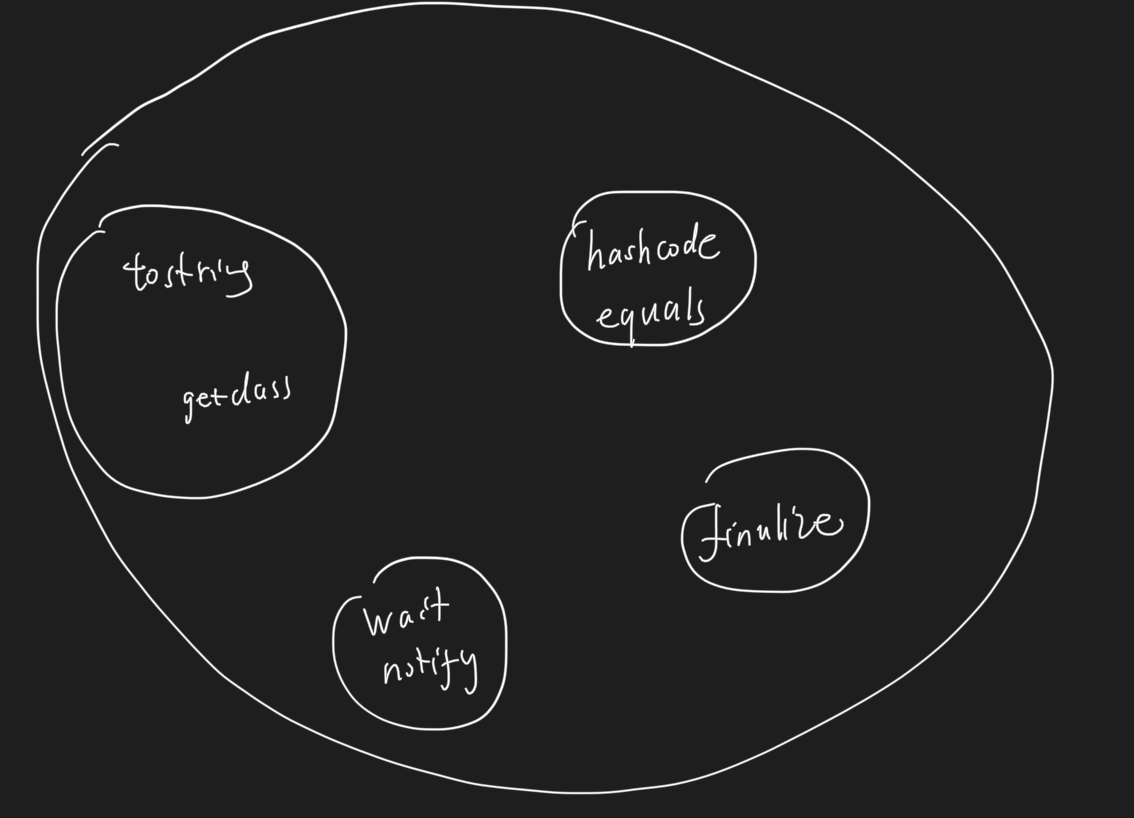 tostring
getclass
hashcode
equals
finalize
wait
notify